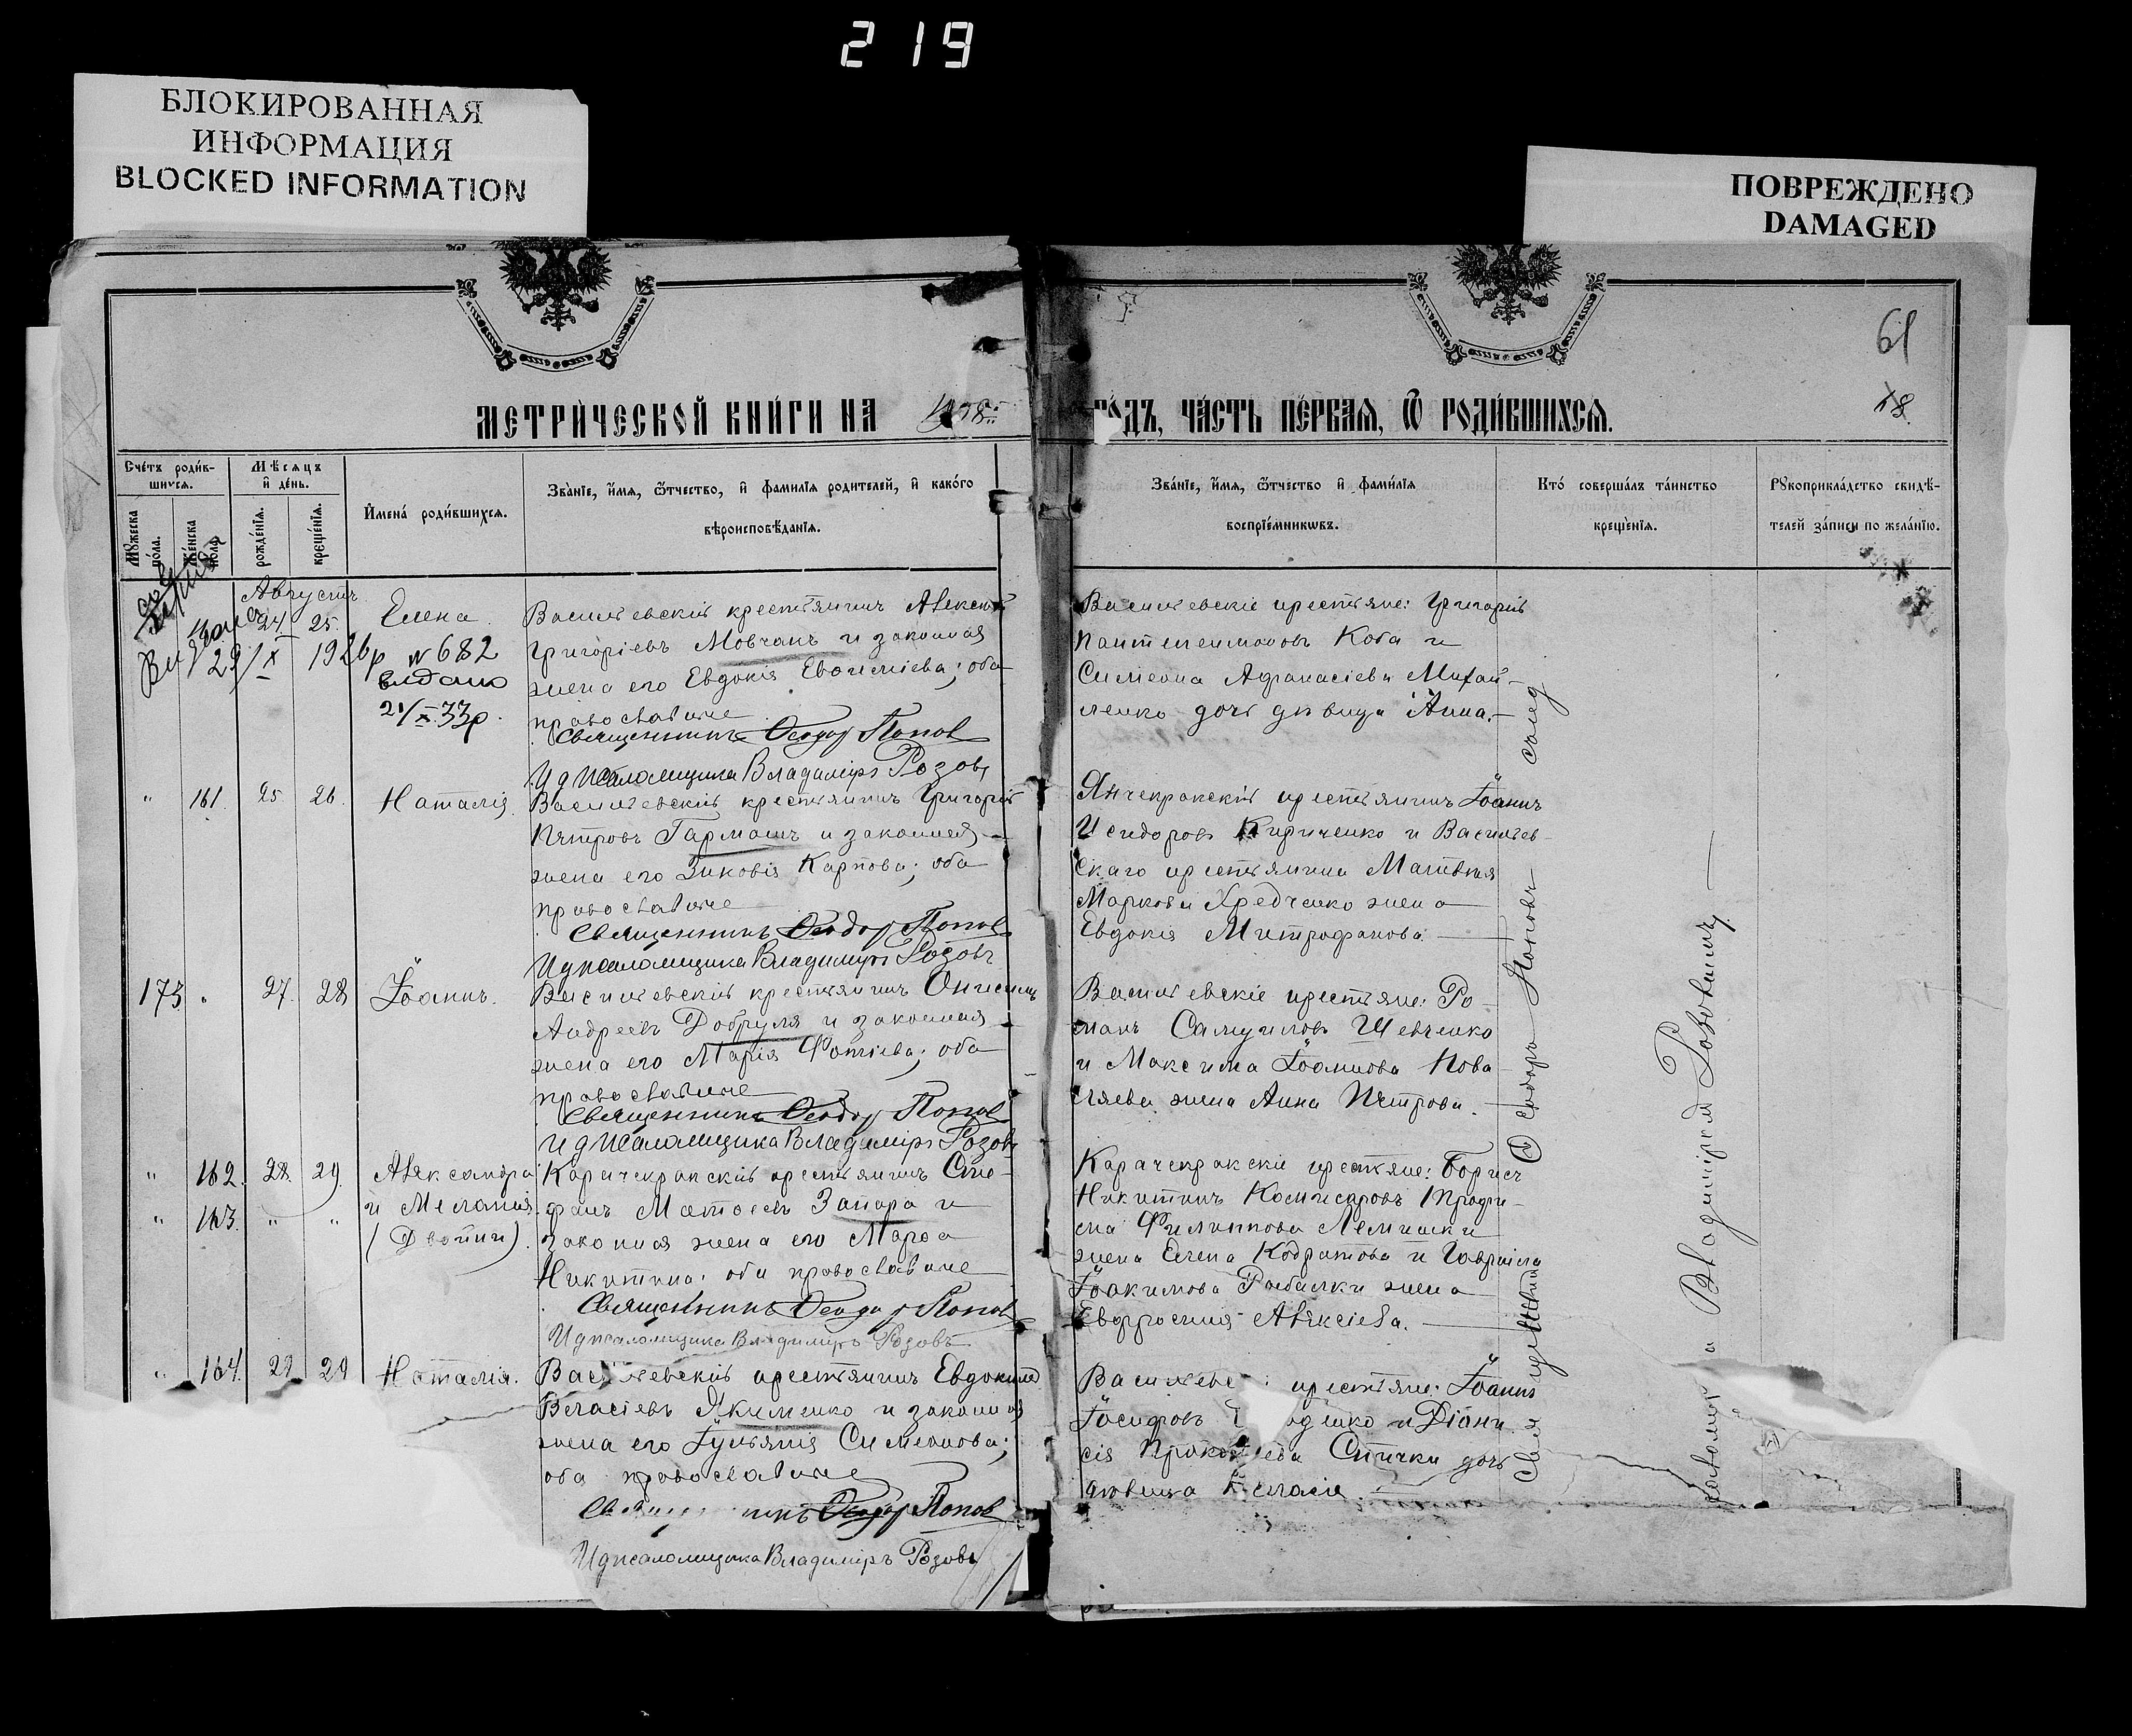 219
БЛОКИРОВАННАЯ
ИНФОРМАЦИЯ
BLOCKED INFORMATION
ПОВРЕЖДЕНО
DAMAGED
61
18.
МЕТРИЧЕСКОЙ КНИГИ НА
ГОДЪ, ЧАСТЬ ПЕРВАЯ, Ѿ РОДИВШИХСЯ.
Счетъ родив-
шихся.
Мѣсяцъ
и день.
Мужеска
пола.
Женска
пола.
рожденія.
крещенія.
Имена родившихся.
Званіе, имя, ѿтчество, и фамилія родителей, и какого
вѣроисповѣданія.
Званіе, имя, ѿтчество и фамилія
воспріемникѡвъ.
Кто совершалъ таинство
крещенія.
Рукоприкладство свидѣ-
телей записи по желанію.
Августъ
24 25. Елена.
29/X 1926р № 682
видано
21/X 33р.
Васильевскій крестьянинъ Алексій
Григоріевъ Мовчанъ и законная
жена его Евдокія Евѳиміева; оба
православные
Священникъ Ѳеодор Попов
И д псаломщика Владиміръ Розовъ
Васильевскіе крестьяне: Григорій
Пантелеимоновъ Коба и
Симеона Афанасіева Михай-
ленко дочь дѣвица Анна.
" 161. 25. 26. Наталія.
Васильевскій крестьянинъ Григорій
Петровъ Гармашъ и законная
жена его Зиновія Карпова; оба
православные
Священникъ Ѳеодор Попов
И д псаломщика Владимиръ Розовъ
Янчекракскій крестьянинъ Іоаннъ
Исидоровъ Кириченко и Васильев-
скаго крестьянина Матвѣя
Маркова Хредченко жена
Евдокія Митрофанова.
173 " 27. 28 Іоаннъ.
Васильевскій крестьянинъ Онисимъ
Андреевъ Добруля и законная
жена его Марія Фотіева; оба
православные
Священникъ Ѳеодор Попов
И д псаломщика Владиміръ Розовъ
Васильевскіе крестьяне: Ро-
манъ Самуиловъ Шевченко
и Максима Іоаннова Кова-
лева жена Анна Петрова.
" 162. 28. 29. Александра
" 163. " " и Меланія
(Двойни).
Карачекракскій крестьянинъ Сте-
фанъ Матѳеевъ Запара и
законная жена его Марѳа
Никитина; оба православные
Священникъ Ѳеодор Попов
И д псаломщика Владимиръ Розовъ
Карачекракскіе крестьяне: Борисъ
Никитинъ Комисаровъ, Трофи-
ма Филиппова Лемишки
жена Елена Кодратова и Гавріила
Іоакимова Рыбалки жена
Евфросинія Алексіева.
" 164. 29 29 Наталія.
Васильевскій крестьянинъ Евдокимъ
Власіевъ Якименко и законная
жена его Іульянія Симеонова;
оба православные
Священникъ Ѳеодор Попов
И д псаломщика Владиміръ Розовъ
крестьяне: Іоаннъ
Іосифовъ и Діони-
сія Спички дочь
дѣвица
Священникъ Ѳеодоръ Поповъ
Владиміръ